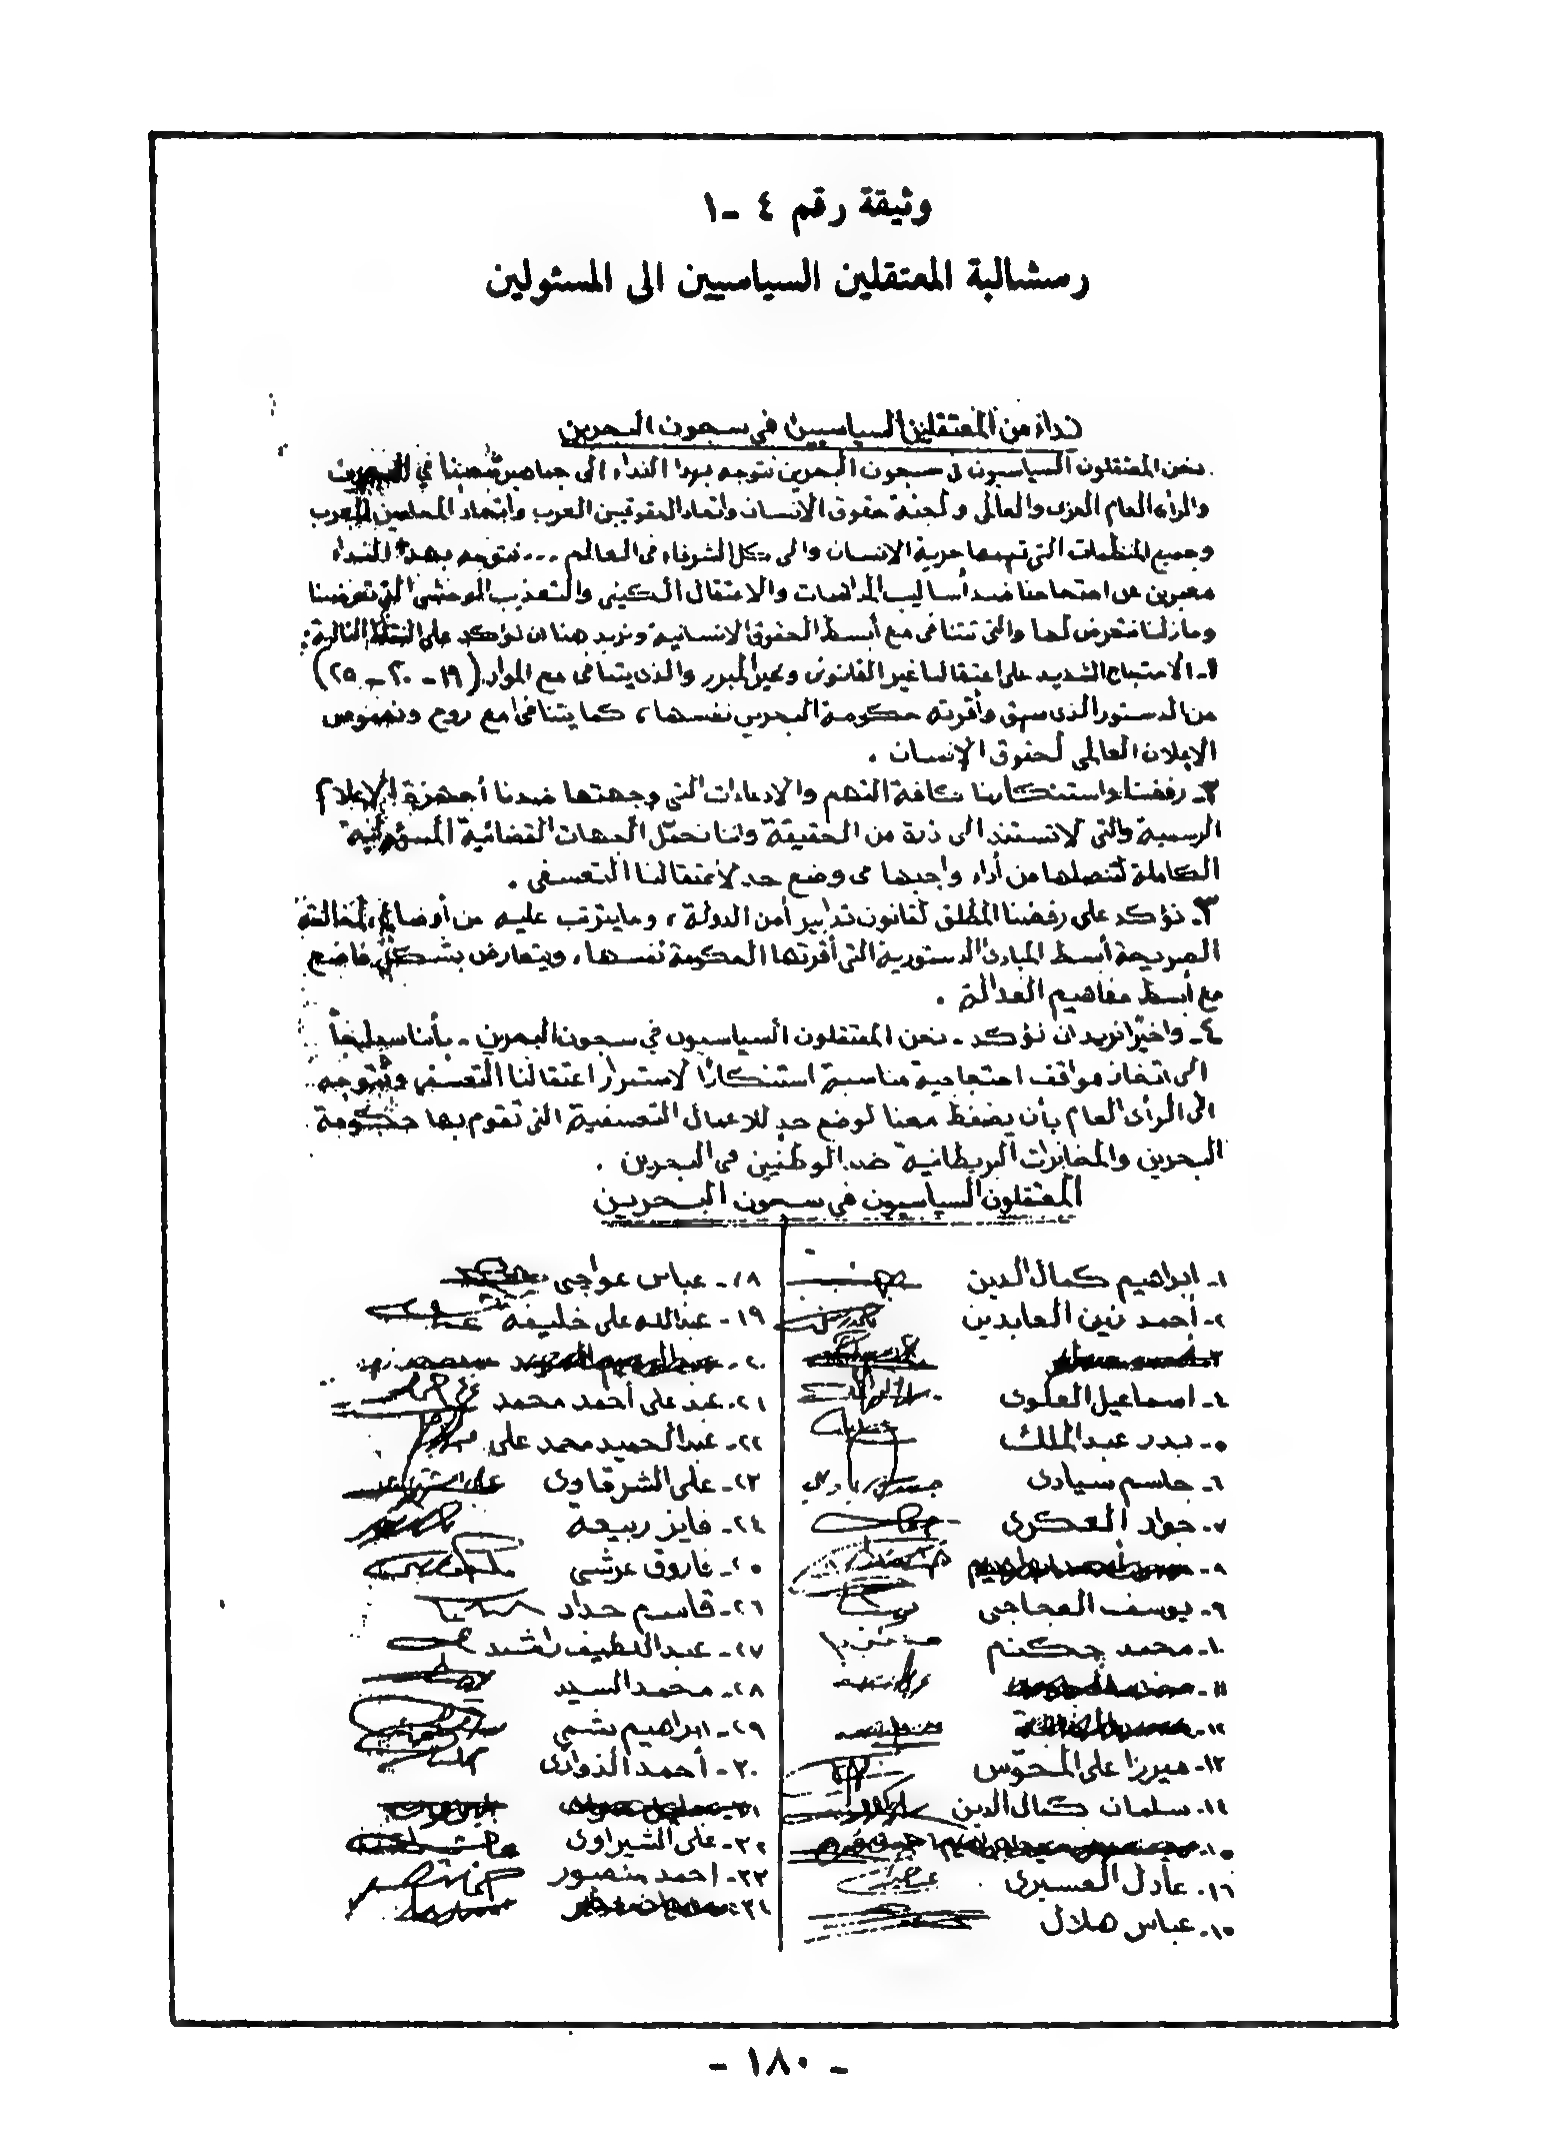 وثيقة رقم ٤ -١
رسشالبة المعتقلين السياسيين الى المسئولين
نداء من المعتقلين السياسيين في سجون البحرين
نحن المعتقلون السياسيون في سجون البحرين نتوجه بهذا النداء الى جماهير شعبنا في البحرين
والرأي العام العربي والعالمي ولجنة حقوق الانسان واتحاد الحقوقيين العرب واتحاد المحامين العرب
وجميع المنظمات التي تهمها حرية الانسان والى كل الشرفاء في العالم ... نتوجه بهذا النداء
معبرين عن احتجاجنا ضد أساليب المداهمات والاعتقال الكيفي والتعذيب الوحشي التي تعرضنا
ومازلنا نتعرض لها والتي تتنافى مع أبسط الحقوق الانسانية ونريد هنا ان نؤكد على النقاط التالية:
١- الاحتجاج الشديد على اعتقالنا غير القانوني وغير المبرر والذي يتنافى مع المواد (١٩ - ٢٠ - ٢٥)
من الدستور الذي سبق وأقرته حكومة البحرين نفسها، كما يتنافى مع روح ونصوص
الإعلان العالمي لحقوق الإنسان .
٢- رفضنا واستنكارنا كافة التهم والادعاءات التي وجهتها ضدنا أجهزة الإعلام
الرسمية والتي لاتستند الى ذرة من الحقيقة واننا نحمّل الجهات القضائية المسؤولية
الكاملة لتنصلها من أداء واجبها في وضع حد لاعتقالنا التعسفي .
٣- نؤكد على رفضنا المطلق لقانون تدابير أمن الدولة، ومايترتب عليه من أوضاع، لمخالفته
الصريحة أبسط المبادئ الدستورية التي أقرتها الحكومة نفسها، ويتعارض بشكل فاضح
مع أبسط مفاهيم العدالة .
٤- واخيرًا نريد ان نؤكد - نحن المعتقلون السياسيون في سجون البحرين - بأننا سنلجأ
الى اتخاذ مواقف احتجاجية مناسبة استنكارًا لاستمرار اعتقالنا التعسفي ونتوجه
الى الرأي العام بأن يضغط معنا لوضع حد للاعمال التعسفية التي تقوم بها حكومة
البحرين والمخابرات البريطانية ضد الوطنيين في البحرين .
المعتقلون السياسيون في سجون البحرين
١- ابراهيم كمال الدين
٢- أحمد زين العابدين
٣-
٤- اسماعيل العلوى
٥- بدر عبد الملك
٦- جاسم سيادى
٧- جواد العكرى
٨-
٩- يوسف العجاجى
١٠- محمد
١١-
١٢-
١٣- ميرزا على المحوّس
١٤- سلمان كمال الدين
١٥-
١٦- عادل العسيرى
١٥- عباس هلال
١٨- عباس عواجى
١٩- عبدالله على خليفة
٢٠-
٢١- عبد على أحمد محمد
٢٢- عبد الحميد محمد على
٢٣- على الشرقاوى
٢٤- فايز ربيعة
٢٥- فاروق عرشى
٢٦- قاسم حداد
٢٧- عبد اللطيف راشد
٢٨- محمد السيد
٢٩- ابراهيم بشمي
٣٠- أحمد الذوادى
٣١-
٣٢- على الشيراوى
٣٣- احمد منصور
٣٤-
- ١٨٠ -